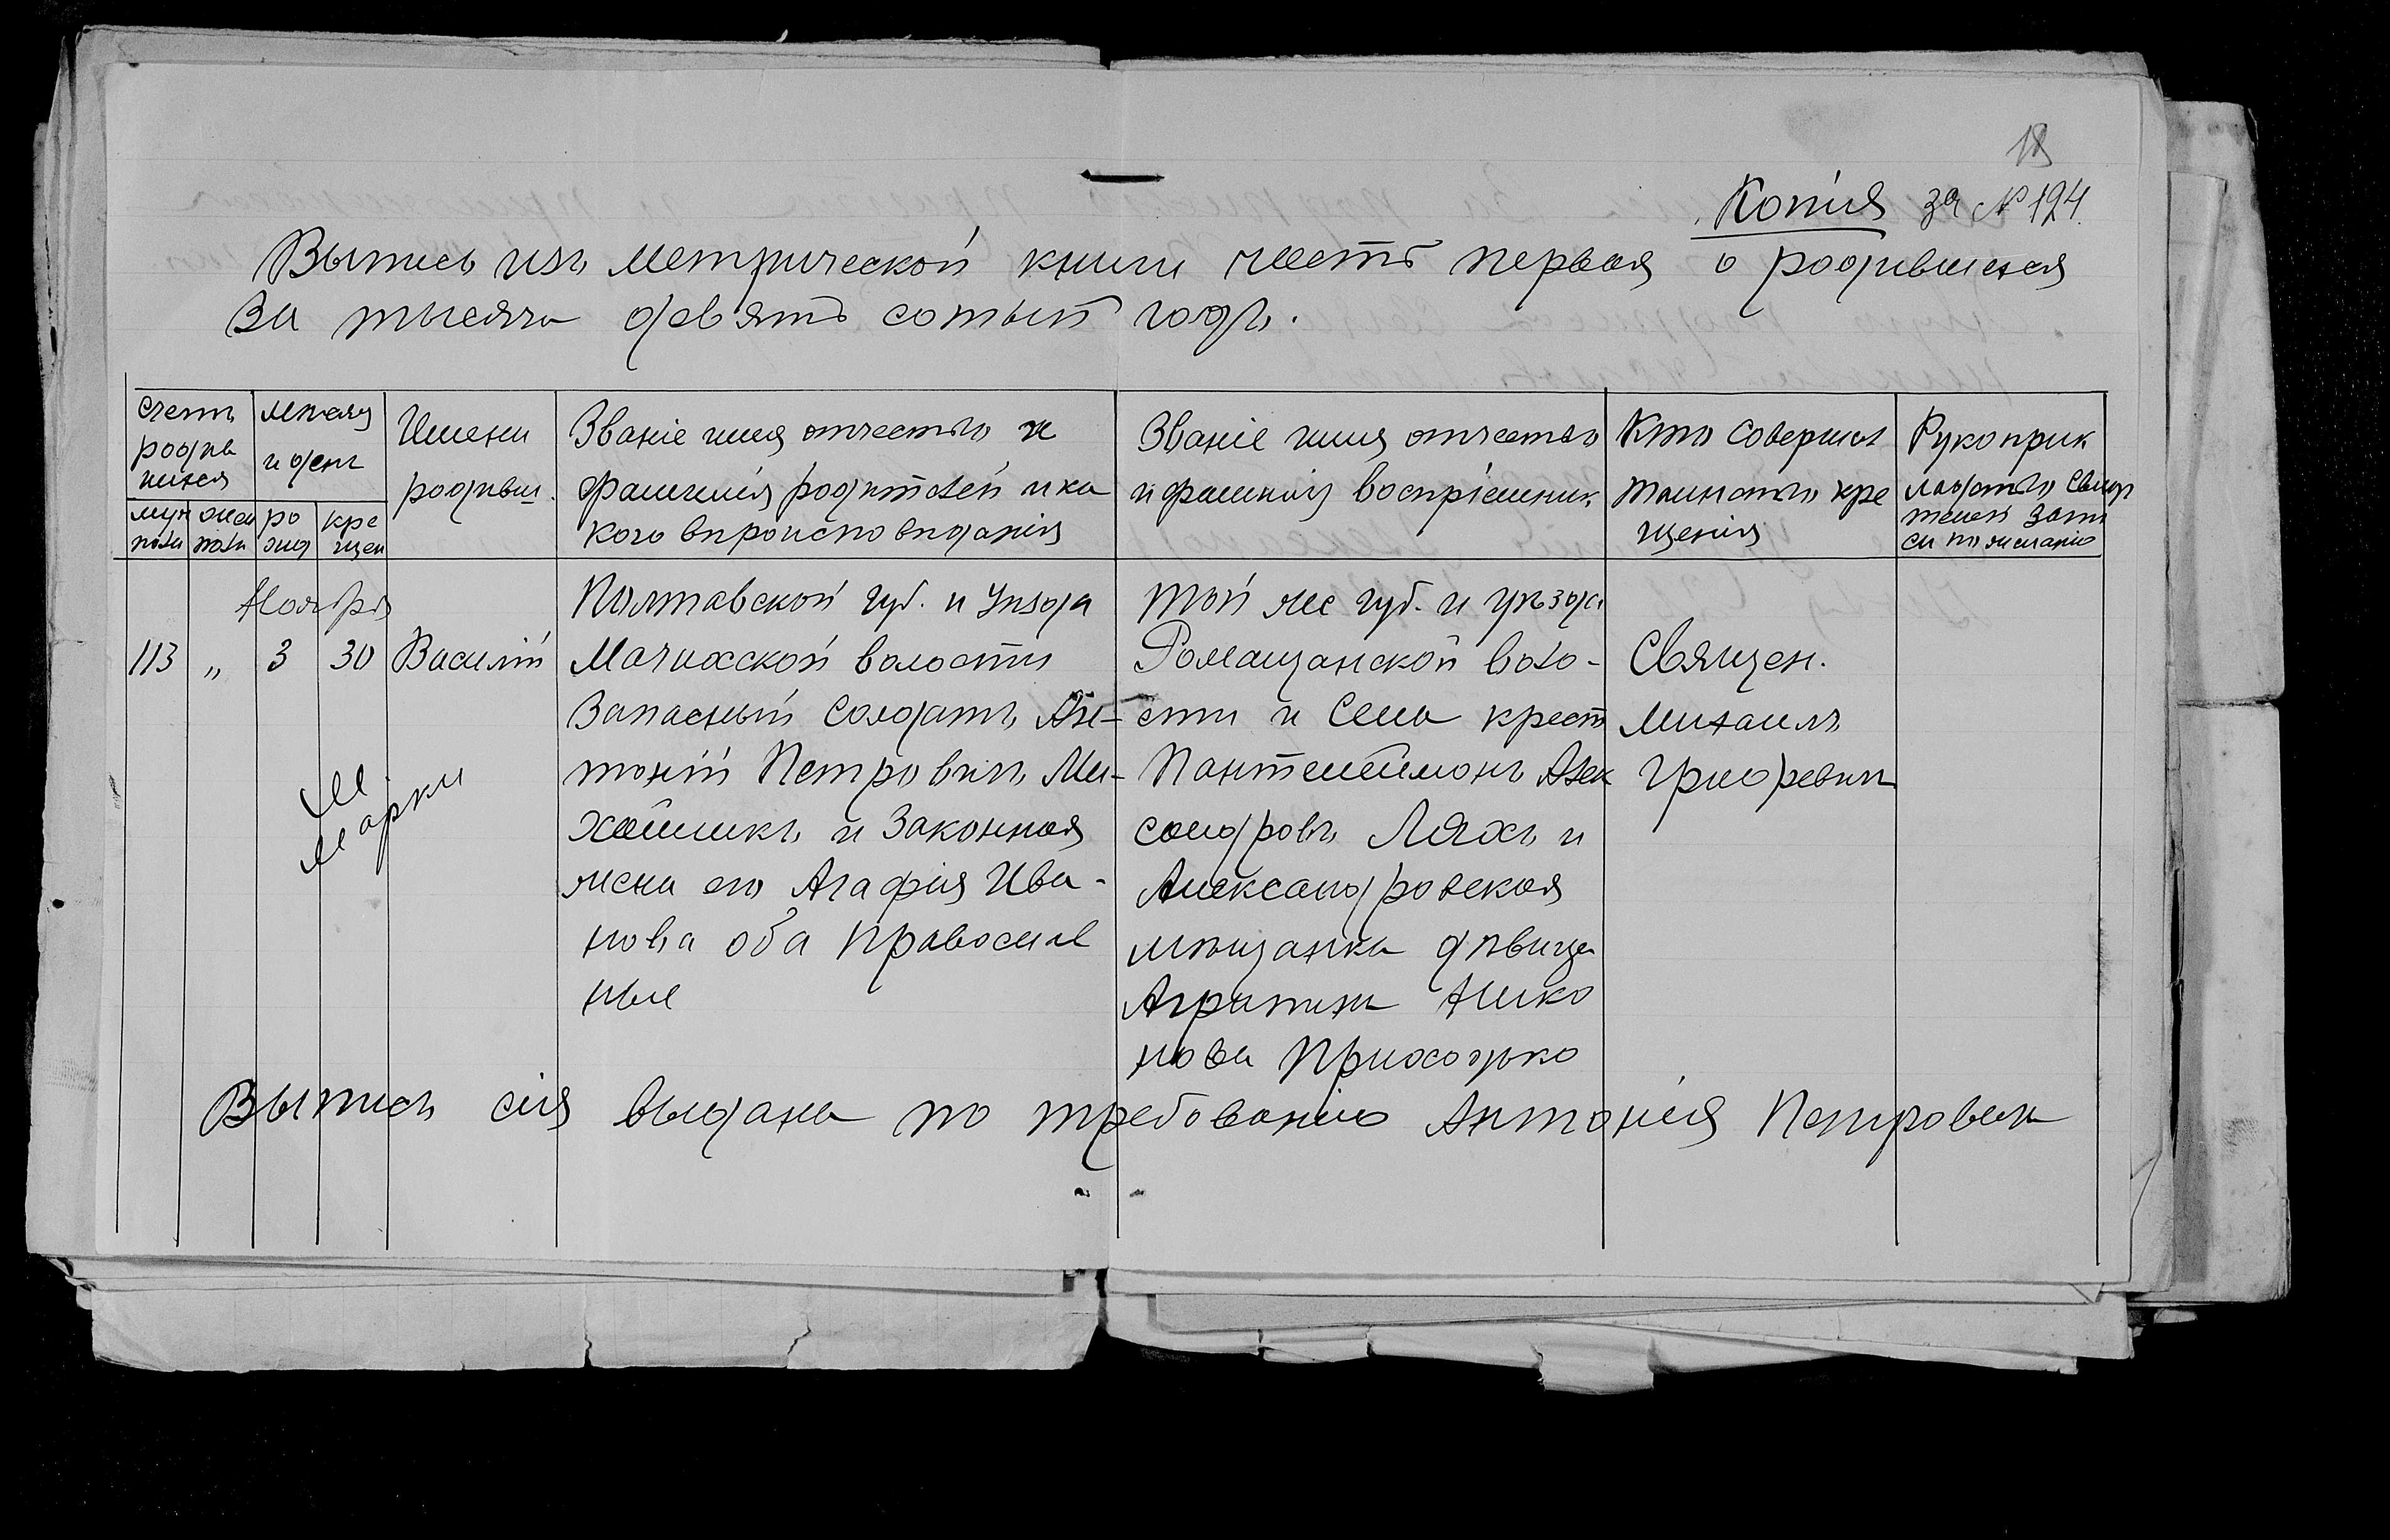 18
Копія за № 124
Выпись изъ метрической книги часть первая о родившихся
За тысяча девять сотый годъ.
Счетъ родившихся
муж пола
жен пола
Мѣсяц и день
ро жд
кре щен
Имени родивш.
Званіе имя отчество и
фамилія родителей и ка
кого вѣроисповѣданія
Званіе имя отчество
и фамилія воспріемник
Кто совершал
таинство кре
щенія
Рукоприк
ладство свидѣ
телей запи
си по желанію
Ноября
113 „ 3 30 Василій
Полтавской губ. и уѣзда
Мачихской волости
Запасный Солдатъ Ан-
тоній Петровичъ Ми-
хайликъ и Законная
жена его Агафія Ива-
нова оба Православ
ные
той же губ. и уѣзда
Рованцанской воло-
сти и Села крест
Пантелеймонъ Алек
сандровъ Ляхъ и
Александровская
мѣщанка дѣвица
Агрипина Нико
нова Приходько
Священ.
Михаилъ
Григоревич
М
марки
Выпись сія выдана по требованію Антонія Петровича